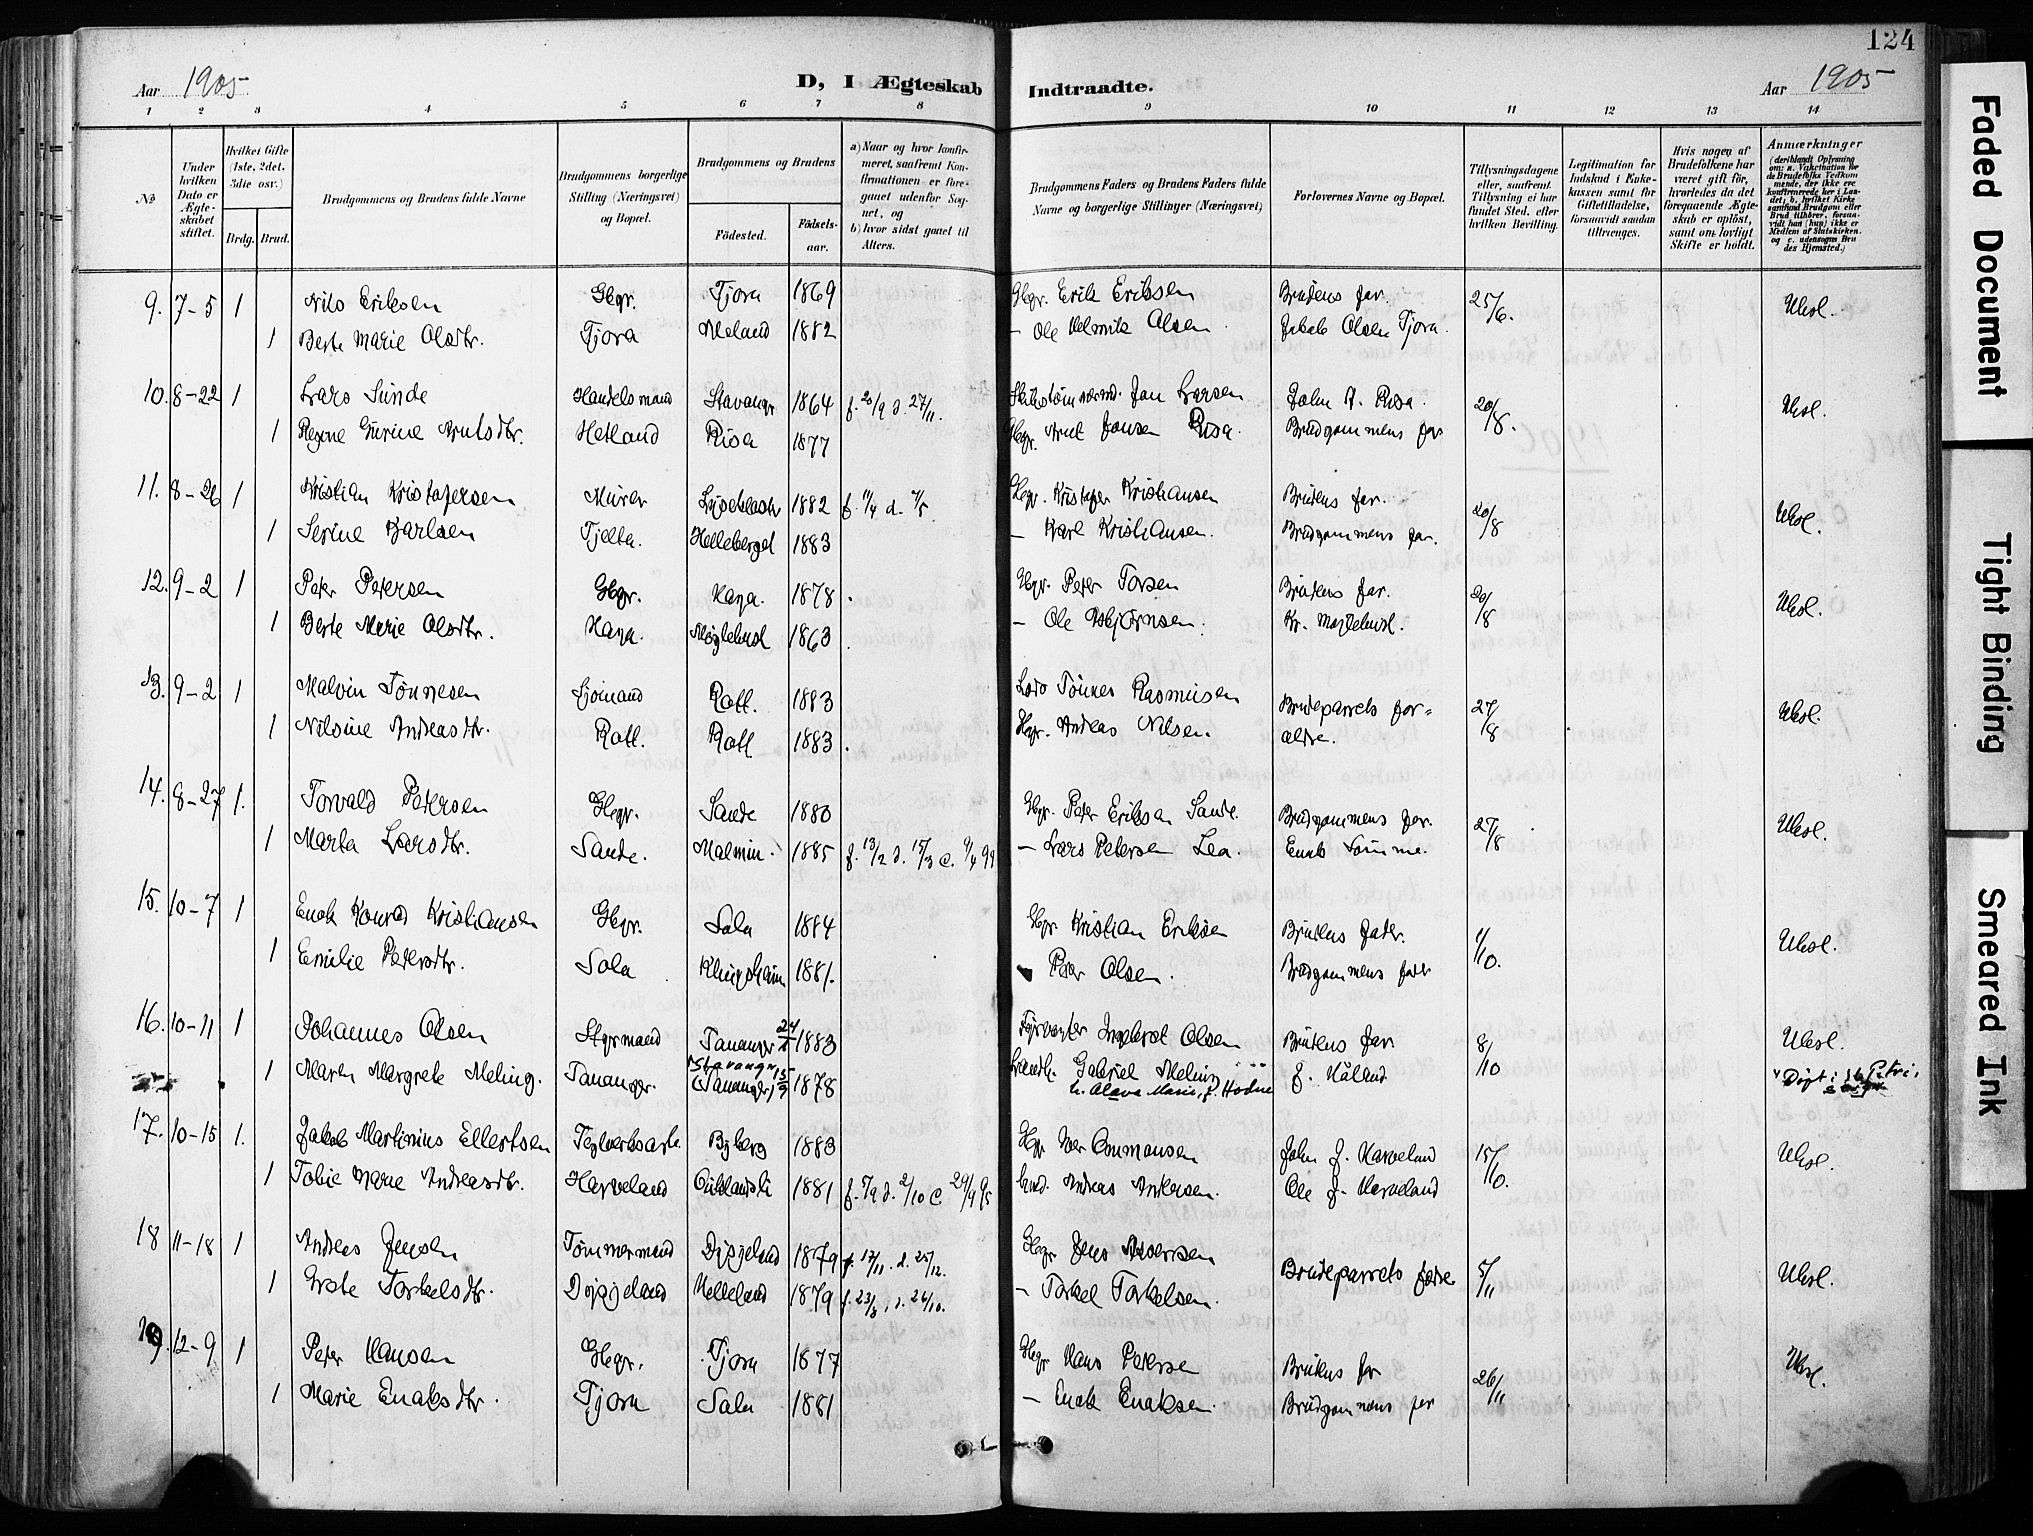 124
Aar 1905 D, I Ægteskab Indtraadte. Aar 1905
1 2 3 4 5 6 7 8 9 10 11 12 13 14
No
Under hvilken Dato er Ægteskabet stiftet.
Hvilket Gifte (1ste, 2det, 3die osv.)
Brdg. Brud.
Brudgommens og Brudens fulde Navne
Brudgommens borgerlige Stilling (Næringsvei) og Bopæl.
Brudgommens og Brudens
Fødested.
Fødselsaar.
a) Naar og hvor konfirmeret, saafremt Konfirmationen er foregaaet udenfor Sognet, og
b) hvor sidst gaaet til Alters.
Brudgommens Faders og Brudens Faders fulde Navne og borgerlige Stillinger (Næringsvei)
Forlovernes Navne og Bopæl.
Tillysningsdagene eller, saafremt Tillysning ei har fundet Sted, efter hvilken Bevilling.
Legitimation for Indskud i Enkekassen samt for Giftetilladelse, forsaavidt saadan tiltrænges.
Hvis nogen af Brudefolkene har været gift før, hvorledes da det foregaaende Ægteskab er opløst, samt om lovligt Skifte er holdt.
Anmærkninger
9. 7-5 1 Nils Eriksen Gbgr. Tjora 1869 Gbgr. Erik Eriksen Brudens far. 25/6.
1 Berte Marie Olsdtr. Tjora Meland 1882 - Ole Helmik Olsen Jakob Olsen Tjora.
10. 8-22 1 Lars Sunde Handelsmand Stavanger 1864 f. 20/9 d. 27/11. Jan Larsen John A. Risa. 20/8.
1 Regine Gurine Arntsdtr. Hetland Risa 1877 Gbgr. Arnt Jansen Risa. Brudgommens far
11. 8-26 1 Kristian Kristofersen Murer 1882 Gbgr. Kristofer Kristiansen Brudens far. 20/8
1 Serine Karlsen Tjelta. Helleberget 1883 - Karl Kristiansen. Brudgommens far.
12. 9-2 1 Peter Petersen Gbgr. Haga. 1878 Gbgr. Peter Torsen Brudens far. 20/8
1 Berte Marie Olsdtr. Haga. 1863 - Ole Asbjørnsen.
13. 9-2 1 Malvin Tønnesen Sjømand Rott. 1883 Lods Tønnes Rasmusen Brudeparrets for= 27/8
1 Nilsine Andreasdtr. Rott. Rott 1883 Gbgr. Andreas Nilsen. ældre.
14. 8-27 1. Torvald Petersen Gbgr. Sande 1880 Gbgr. Peter Eriksen Sande. Brudgommens far. 27/8
1 Marta Larsdtr. Sande. Malmin. 1885 f. 13/2 d. 15/3 c. 9/4 99 - Lars Petersen Lea. Enok Sømme.
15. 10-7 1 Enok Konrad Kristiansen Gbgr. Sola 1884 Gbgr. Kristian Eriksen Brudens fader. 1/10.
1 Emilie Petersdtr. Sola Klingsheim 1881. Peter Olsen. Brudgommens fader
16. 10-11 1 Johannes Olsen Styrmand Tananger 1883 Fyrvogter Ingebret Olsen Brudens far 8/10
1 Maren Margrete Meling. Tananger. Stavanger (Tananger) 1878 Gabriel Meling
h. Olava Marie, f. Hodne J. Håland Døpt i St Petri,
17. 10-15 1. Jakob Martinius Ellertsen Teglverksarb. Byberg 1883 John J. Harveland 15/10.
1 Tobie Marie Andreasdtr. Harveland 1881 f. 7/9 d. 2/10 c. 29/9 95 Andreas Andersen. Ole J. Harveland
18 11-18 1 Andreas Jensen Tømmermand Dysjeland 1879 f. 17/11. d. 25/12. Gbgr Jens Brudeparrets fædre 5/11
1 Grete Torkelsdtr. Dysjeland Helleland 1879 f. 23/8, d. 26/10. - Torkel Torkelsen.
19. 12-9 1 Peter Hansen Gbgr. Tjora 1877 Gbgr Hans Petersen Brudens far 26/11
1 Marie Enoksdtr. Tjora Sola 1881 - Enok Enoksen. Brudgommens far
Faded Document
Tight Binding
Smeared Ink